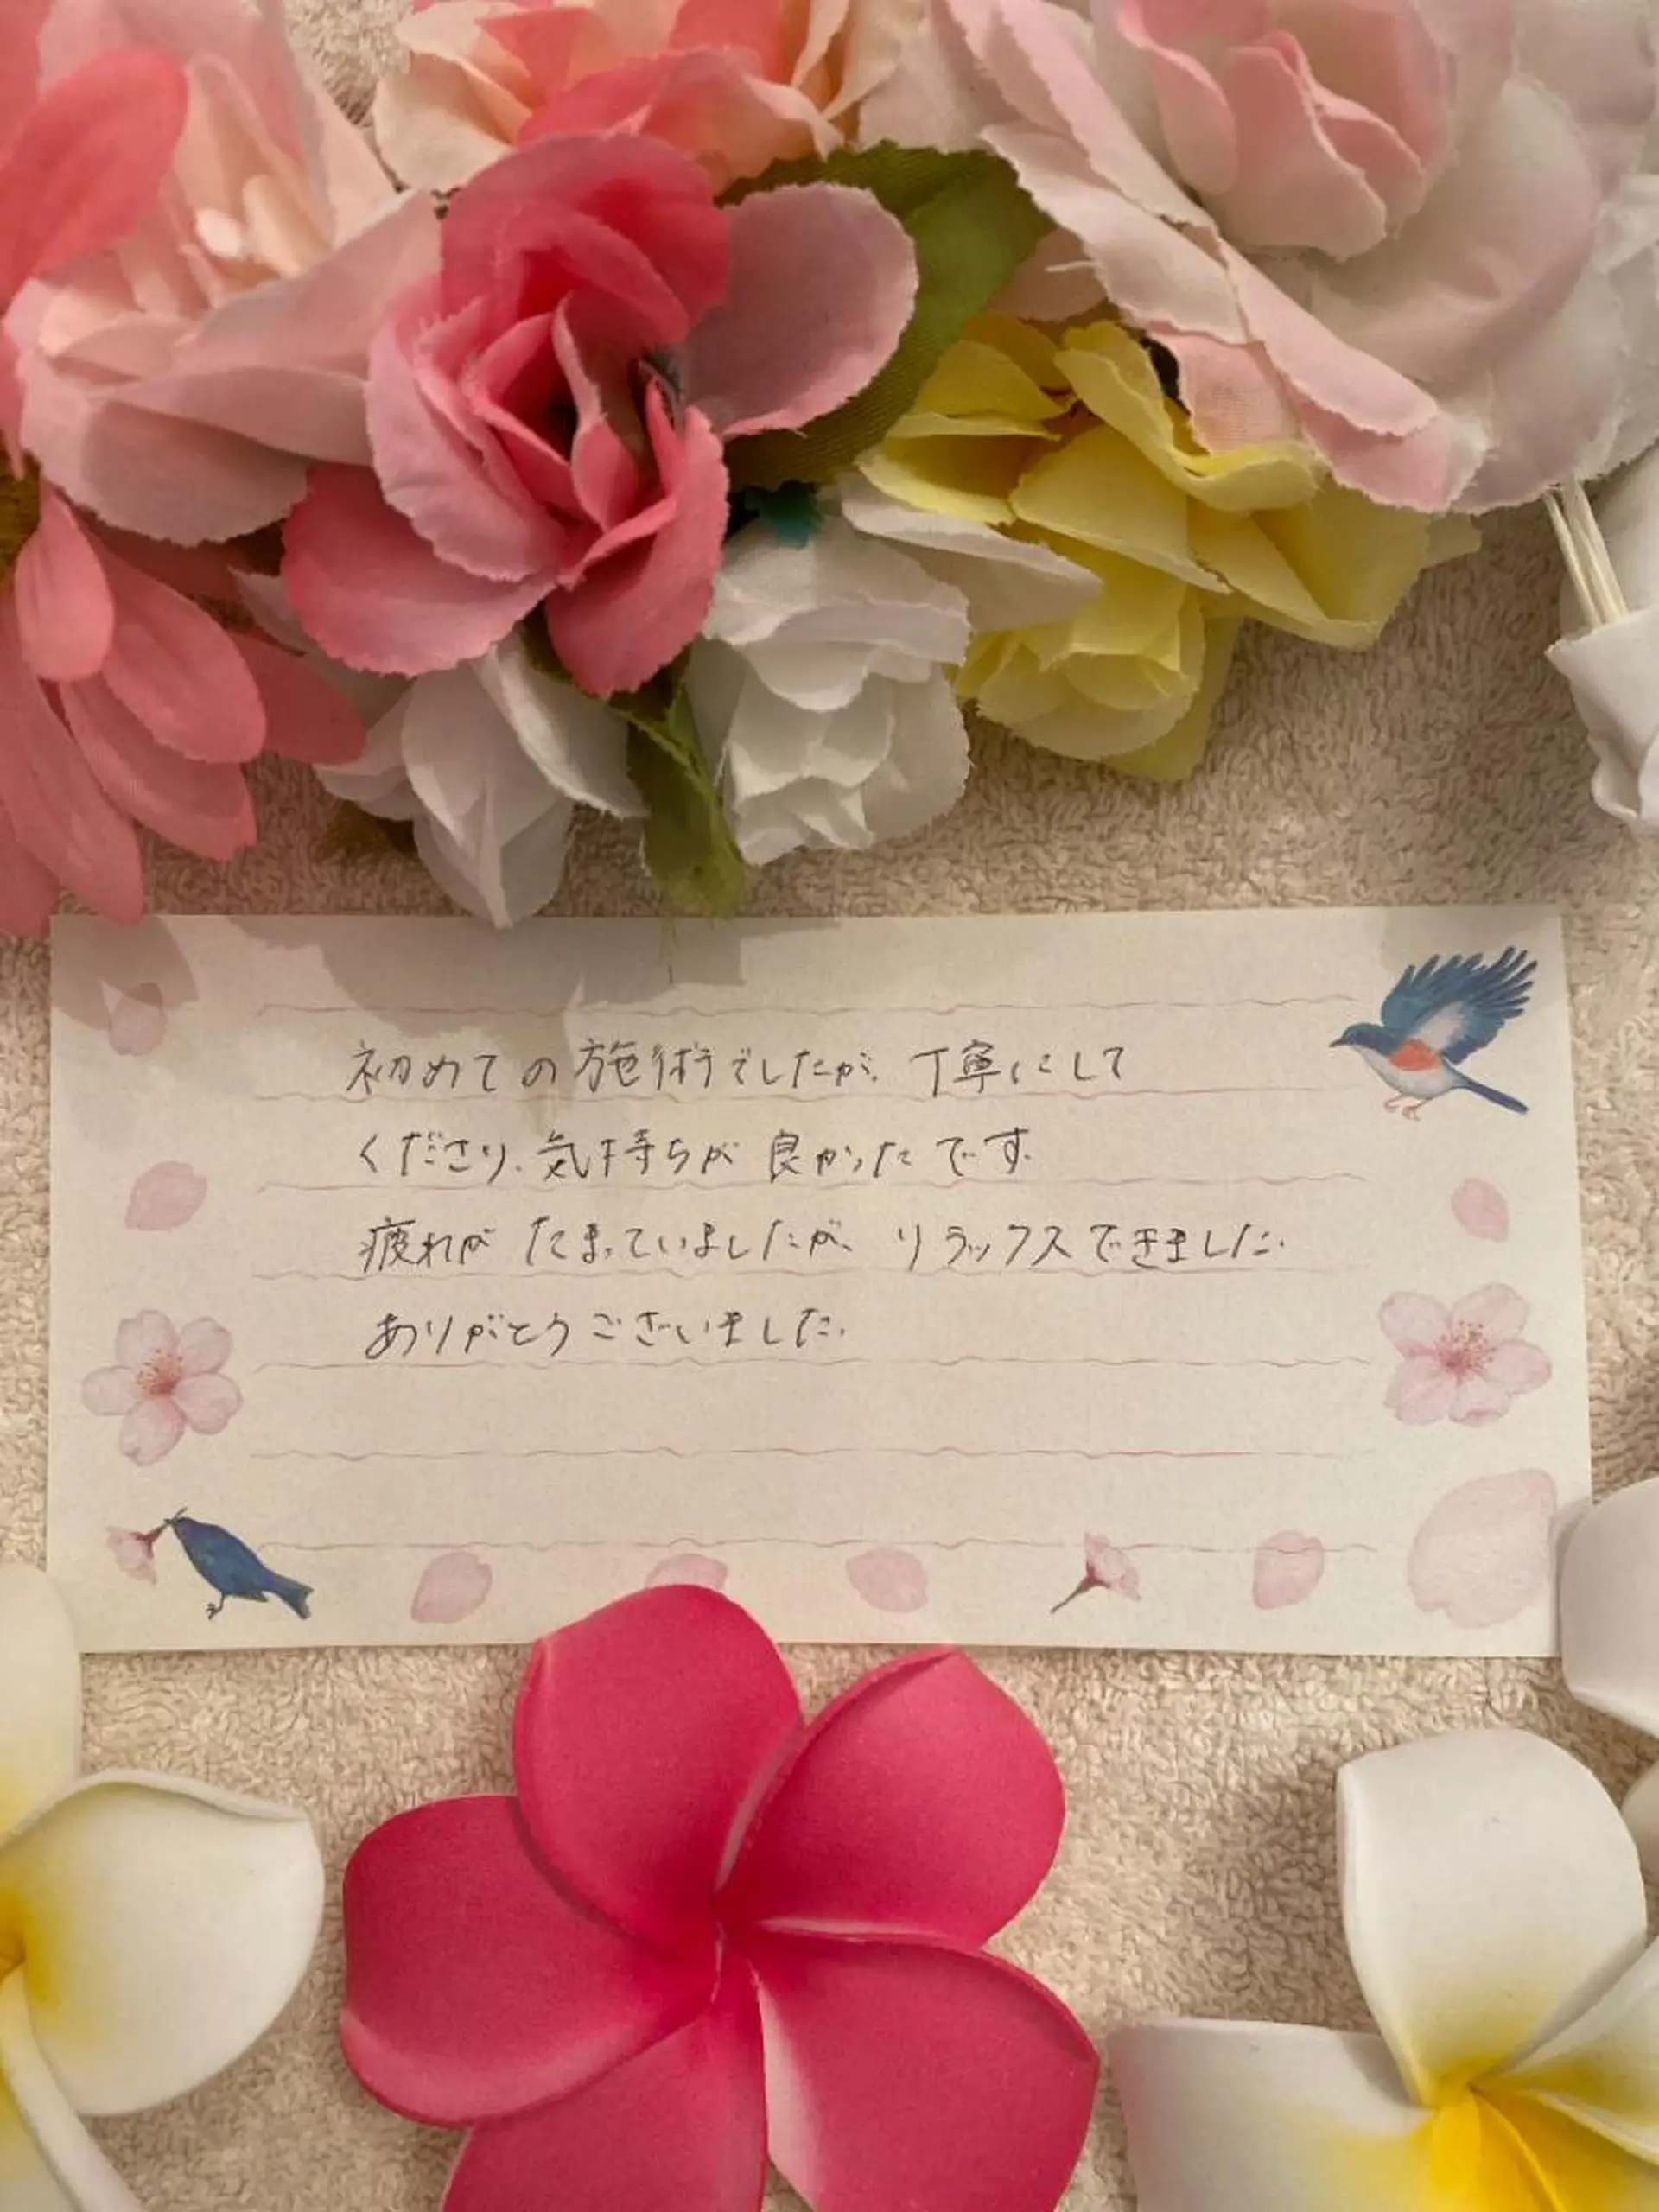 初めての施術でしたが、丁寧にして
くださり、気持ちが良かったです。
疲れがたまっていましたが、リラックスできました。
ありがとうございました。